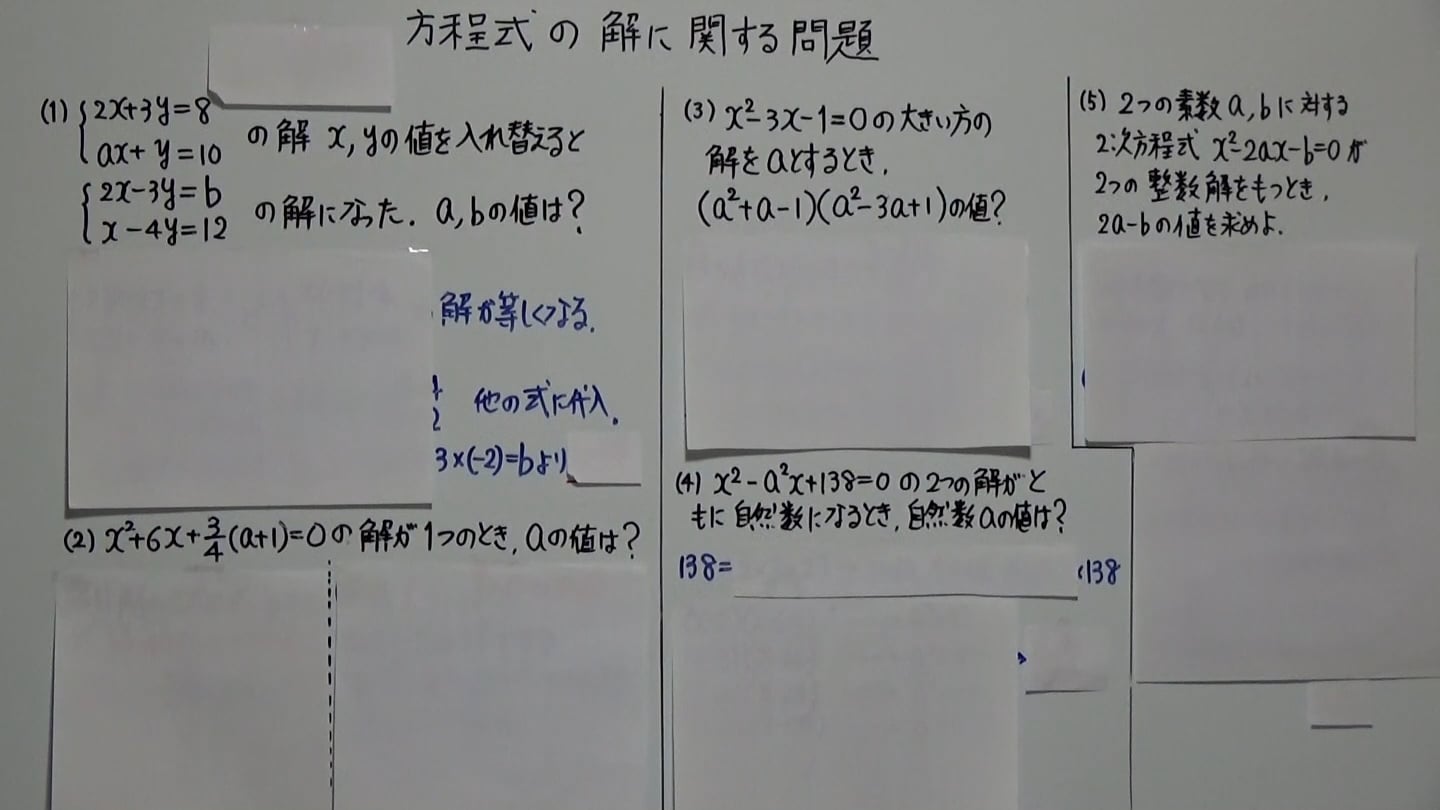 方程式の解に関する問題
(1) {2x+3y=8
ax+y=10 の解 x,yの値を入れ替えると
{2x-3y=b
x-4y=12 の解になった. a,bの値は?
解が等しくなる.
他の式に代入.
3×(-2)=bより
(2) x²+6x+3/4(a+1)=0の解が1つのとき,aの値は?
(3) x²-3x-1=0の大きい方の
解をaとするとき,
(a²+a-1)(a²-3a+1)の値?
(4) x²-a²x+138=0の2つの解がと
もに自然数になるとき,自然数aの値は?
138=
138
(5) 2つの素数a,bに対する
2次方程式 x²-2ax-b=0が
2つの整数解をもつとき,
2a-bの値を求めよ.